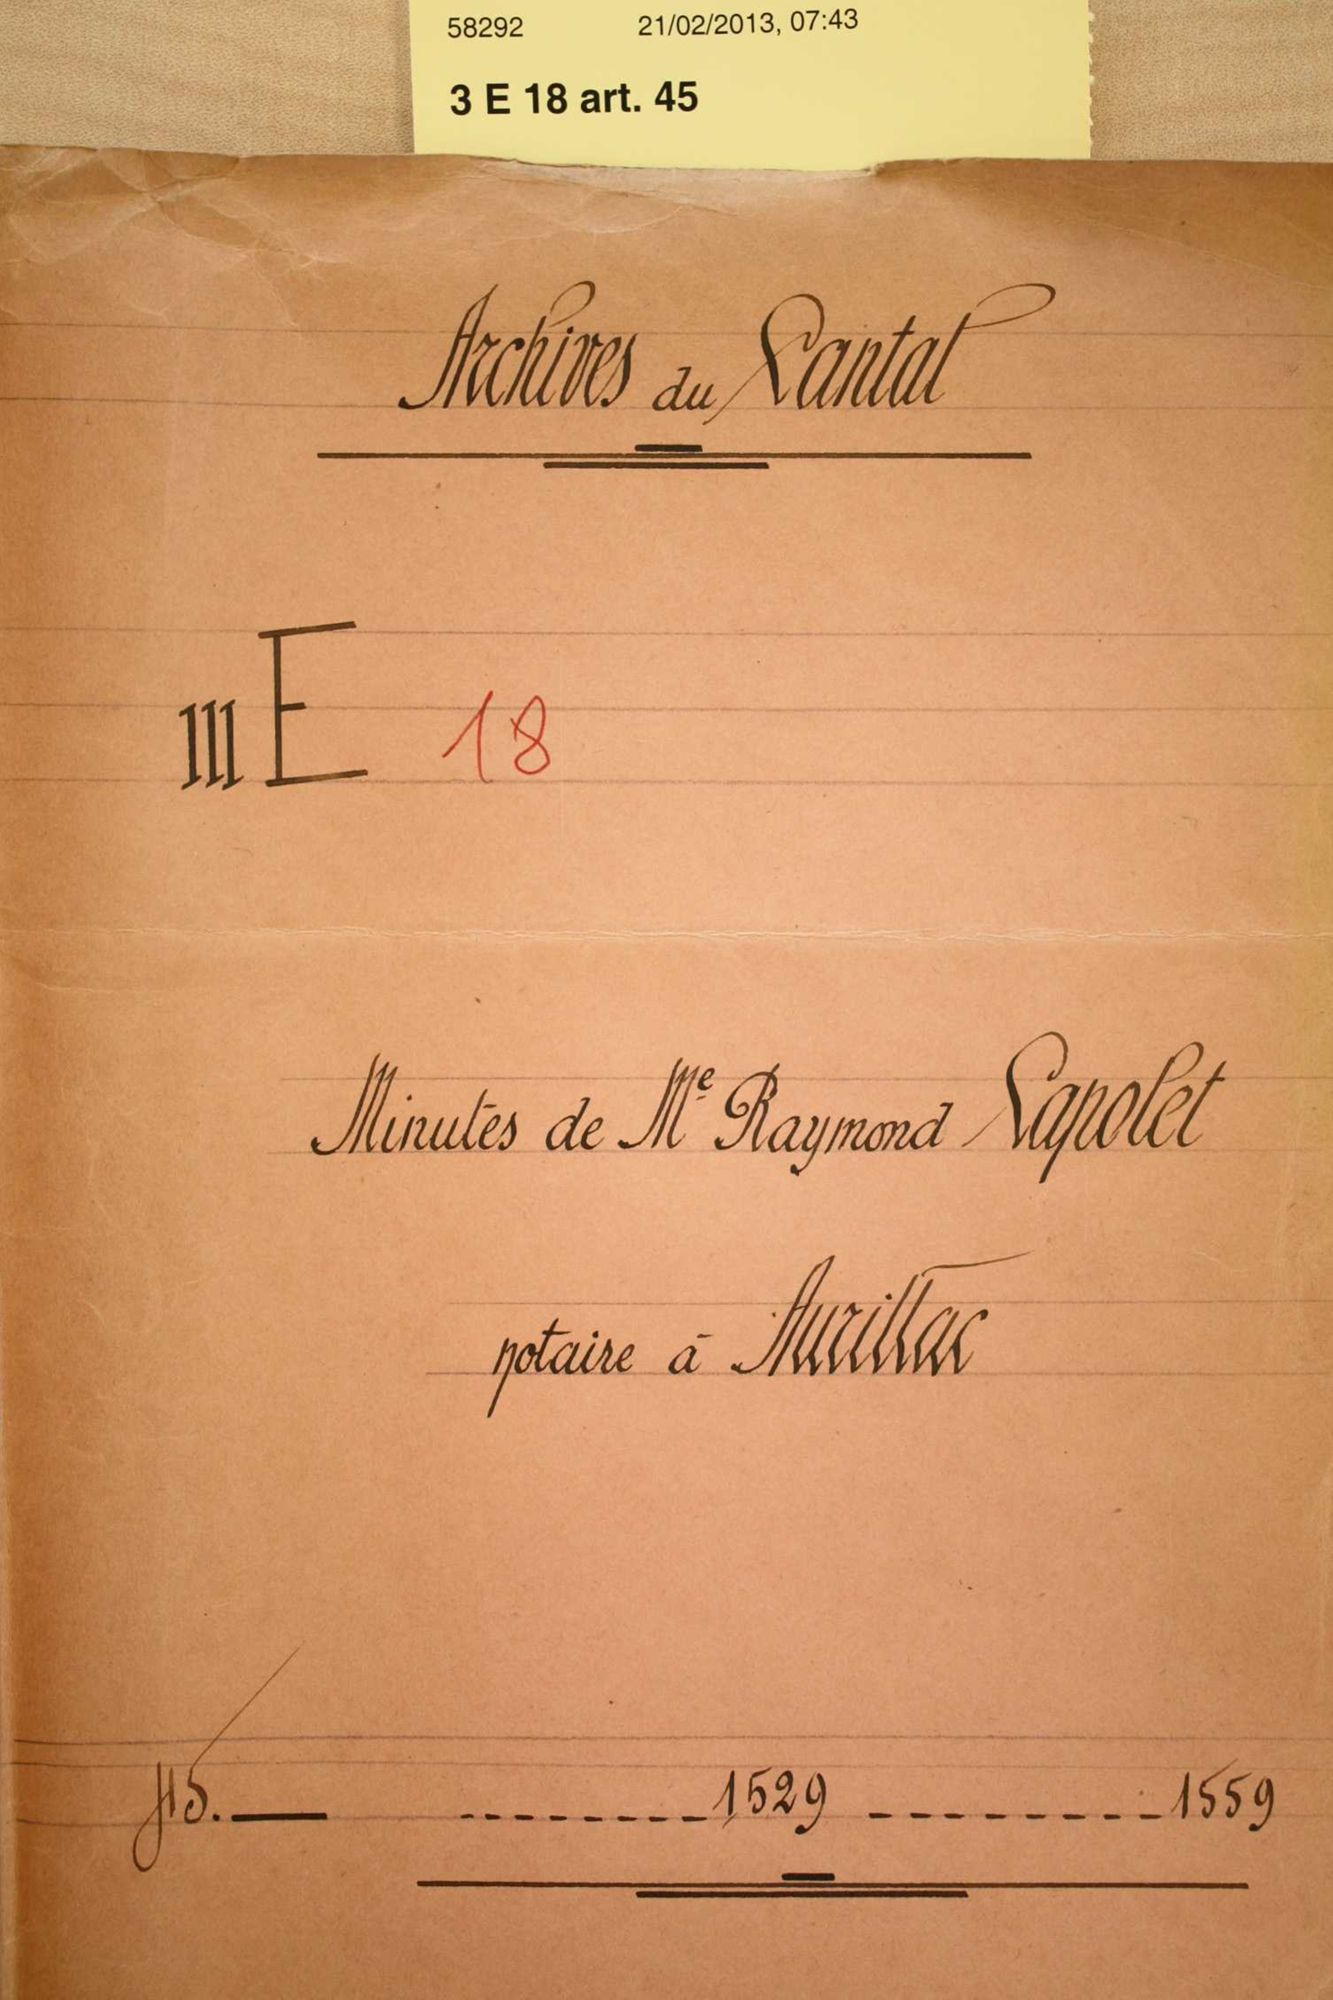 58292 21/02/2013, 07:43
3 E 18 art. 45
Archives du Cantal
III E 18
Minutes de Me Raymond Capolet
notaire à Aurillac
1529 1559